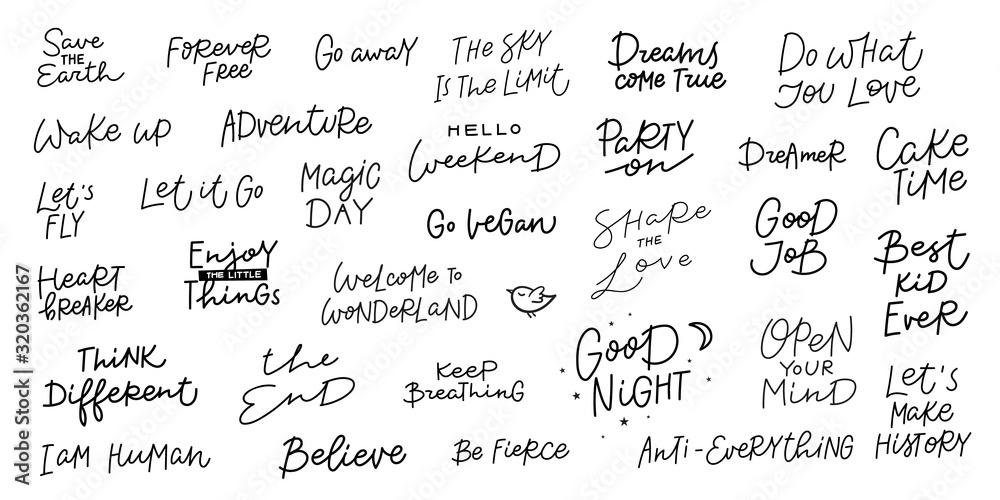 Save
THE
Earth
Forever
Free
Go away
The Sky
Is The Limit
Dreams
come true
Do what
you love
Wake up
Adventure
HELLO
Weekend
Party
on
Dreamer
Cake
Time
Let's
Fly
Let it Go
Magic
Day
Go vegan
Share
THE
Love
Good
Job
Best
Kid
Ever
Heart
breaker
Enjoy
THE LITTLE
Things
Welcome to
Wonderland
Think
Different
the
End
Keep
Breathing
Good
Night
Open
YOUR
Mind
Let's
Make
History
I am Human
Believe
Be Fierce
Anti-Everything
Adobe Stock | #320362167
Adobe Stock